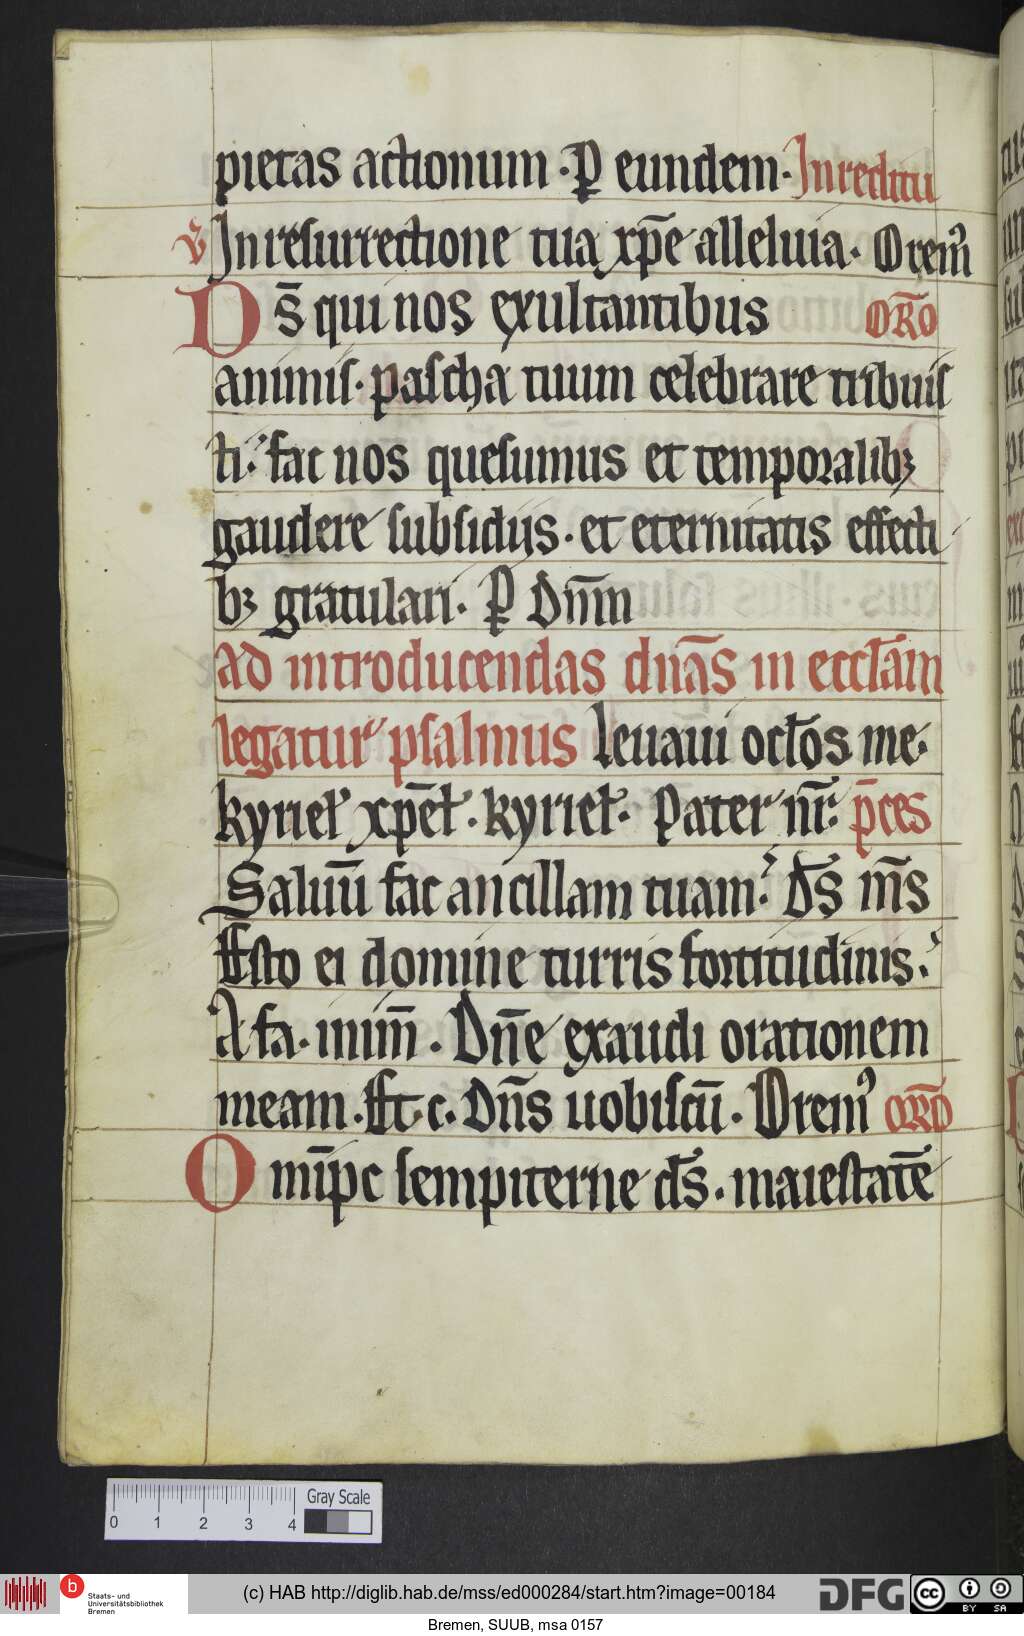 pietas actionum · P̄ eundem · In reditu
v̄ In resurrectione tua xp̄e alleluia · Orem9
Ds̄ qui nos exultantibus ORŌ
animis · pascha tuum celebrare tribuis
ti · fac nos quesumus et temporalibꝫ
gaudere subsidijs · et eternitatis effecti
bꝫ gratulari · P̄ Dn̄m
ad introducendas dnās in eccl̄am
legatur psalmus leuaui oclōs me ·
kyriel̄ xp̄el̄ · kyriel̄ · Pater nr̄ · p̄ces
Saluū fac ancillam tuam · Ds̄ ms̄
Esto ei domine turris fortitudinis ·
A fa · inim̄ · Dn̄e exaudi orationem
meam · Et · c · Dn̄s uobiscū · Orem9 ORŌ
Omīpc sempiterne ds̄ · maiestatē
Gray Scale
0 1 2 3 4
b Staats- und
Universitätsbibliothek
Bremen
(c) HAB http://diglib.hab.de/mss/ed000284/start.htm?image=00184
DFG
cc BY SA
Bremen, SUUB, msa 0157